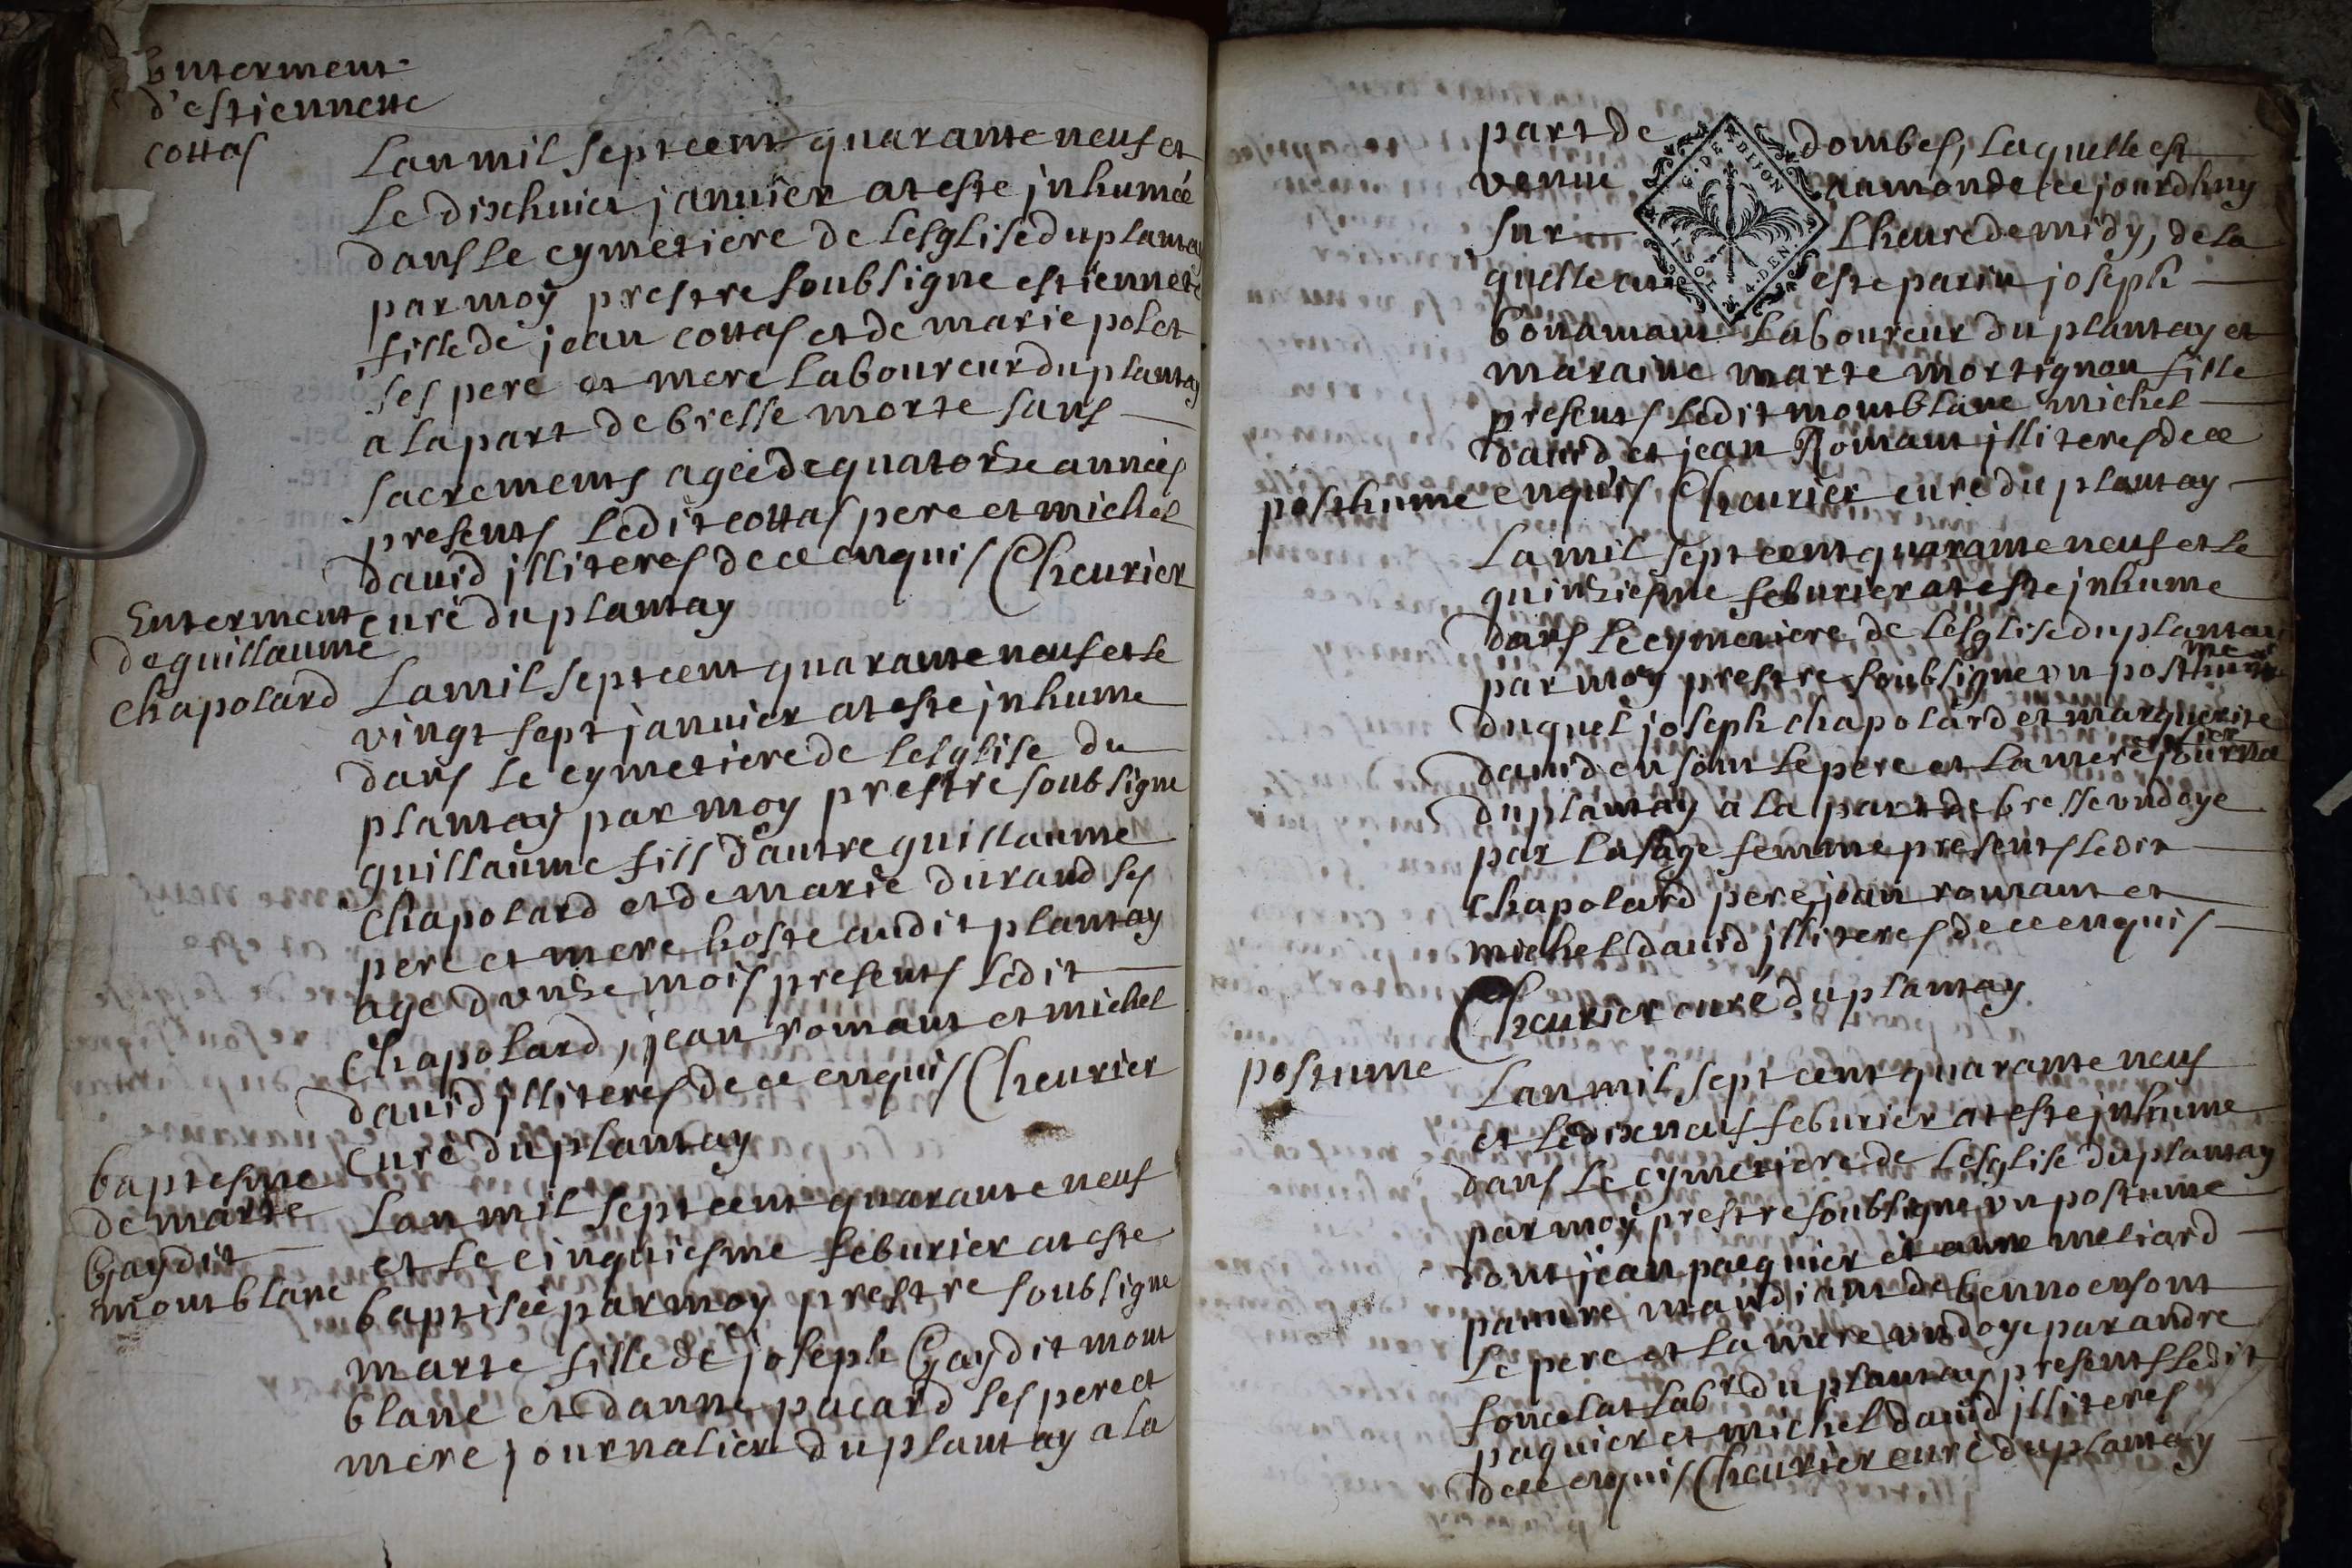 Enterment
d'estiennette
cottas
Lan mil sept cent quarante neuf et
le dixhuict januier at este jnhumée
dans le cymetiere de lesglise du plantay
par moy prestre soubsigne estiennete
fille de jean cottas et de marie polet
ses pere et mere laboureur du plantay
a la part de bresse morte sans
sacrements agée de quatorze années
presents ledit cottas pere et michel
dauid jlliteres de ce enquis Cheurier
curé du plantay
Enterment
de guillaume
chapolard
La mil sept cent quarante neuf et le
vingt sept januier at este jnhume
dans le cymetiere de lesglise du
plantay par moy prestre soubsigne
guillaume fils dautre guillaume
chapolard et de marie durand ses
pere et mere hoste audit plantay
age dvnze mois presents ledit
chapolard, jean romant et michel
dauid jlliteres de ce enquis Cheurier
curé du plantay
baptesme
de marte
Gaydit
montblanc
Lan mil sept cent quarante neuf
et le cinquiesme feburier at este
baptisée par moy prestre soubsigne
marte fille de joseph Gaydit mont
blanc et danne pacard ses pere et
mere journalier du plantay a la
part de dombes, laquelle est
venue au monde ce jourdhuy
sur lheure de midy, de la
quelle at este parin joseph
bonamant laboureur du plantay et
maraine marte mortignon fille
presents ledit montblanc michel
dauid et jean Romant jlliteres de ce
enquis Cheurier curé du plantay
G. DE DIJON
1. SOL 4. DEN
posthume
La mil sept cent quarante neuf et le
quinziesme feburier at este jnhume
dans le cymetiere de lesglise du plantay
par moy prestre soubsigne vn posthume
duquel joseph chapolard et marguerite
dauid en sont le pere et la mere journalier
du plantay a la part de bresse vndoye
par la sage femme presents ledit
chapolard pere, jean romant et
michel dauid jlliteres de ce enquis
Cheurier curé du plantay
postume
Lan mil sept cent quarante neuf
et le dix neuf feburier at este jnhume
dans le cymetiere de lesglise du plantay
par moy prestre soubsigne vn postume
dont jean paequier et anne meliard
pauure mandiant de benno en sont
le pere et la mere vndoye par andre
foncelat labr du plantay presents ledit
paquier et michel dauid jlliteres
de ce enquis Cheurier curé du plantay